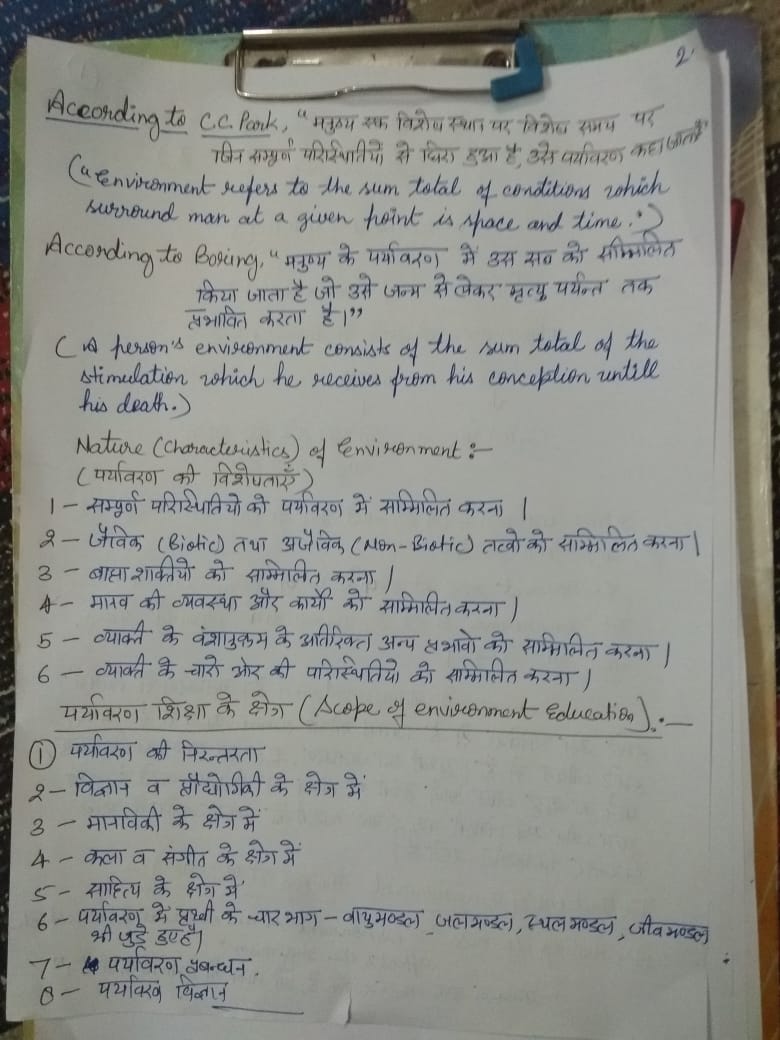 2.
According to C.C. Park, "मनुष्य एक विशेष स्थान पर विशेष समय पर
जिन सम्पूर्ण परिस्थितियों से घिरा हुआ है, उसे पर्यावरण कहा जाता है"
("Environment refers to the sum total of conditions which
surround man at a given point is space and time.")
According to Boring, "मनुष्य के पर्यावरण में उस सब को सम्मिलित
किया जाता है जो उसे जन्म से लेकर मृत्यु पर्यन्त तक
प्रभावित करता है।"
(A person's environment consists of the sum total of the
stimulation which he receives from his conception untill
his death.)
Nature (Characteristics) of Environment :-
(पर्यावरण की विशेषताएँ)
1 - सम्पूर्ण परिस्थितियो को पर्यावरण में सम्मिलित करना |
2 - जैविक (Biotic) तथा अजैविक (Non-Biotic) तत्वो को सम्मिलित करना |
3 - बाह्य शक्तियो को सम्मिलित करना |
4 - मानव की व्यवस्था और कार्यों को सम्मिलित करना |
5 - व्यक्ति के वंशानुक्रम के अतिरिक्त अन्य प्रभावो को सम्मिलित करना |
6 - व्यक्ति के चारो ओर की परिस्थितियो को सम्मिलित करना |
पर्यावरण शिक्षा के क्षेत्र (Scope of environment Education) :-
① पर्यावरण की निरन्तरता
2 - विज्ञान व प्रौद्योगिकी के क्षेत्र में
3 - मानविकी के क्षेत्र में
4 - कला व संगीत के क्षेत्र में
5 - साहित्य के क्षेत्र में
6 - पर्यावरण में पृथ्वी के चार भाग - वायुमण्डल, जलमण्डल, स्थलमण्डल, जीवमण्डल
भी जुड़े हुए है।
7 - पर्यावरण प्रबन्धन.
8 - पर्यावरण विज्ञान